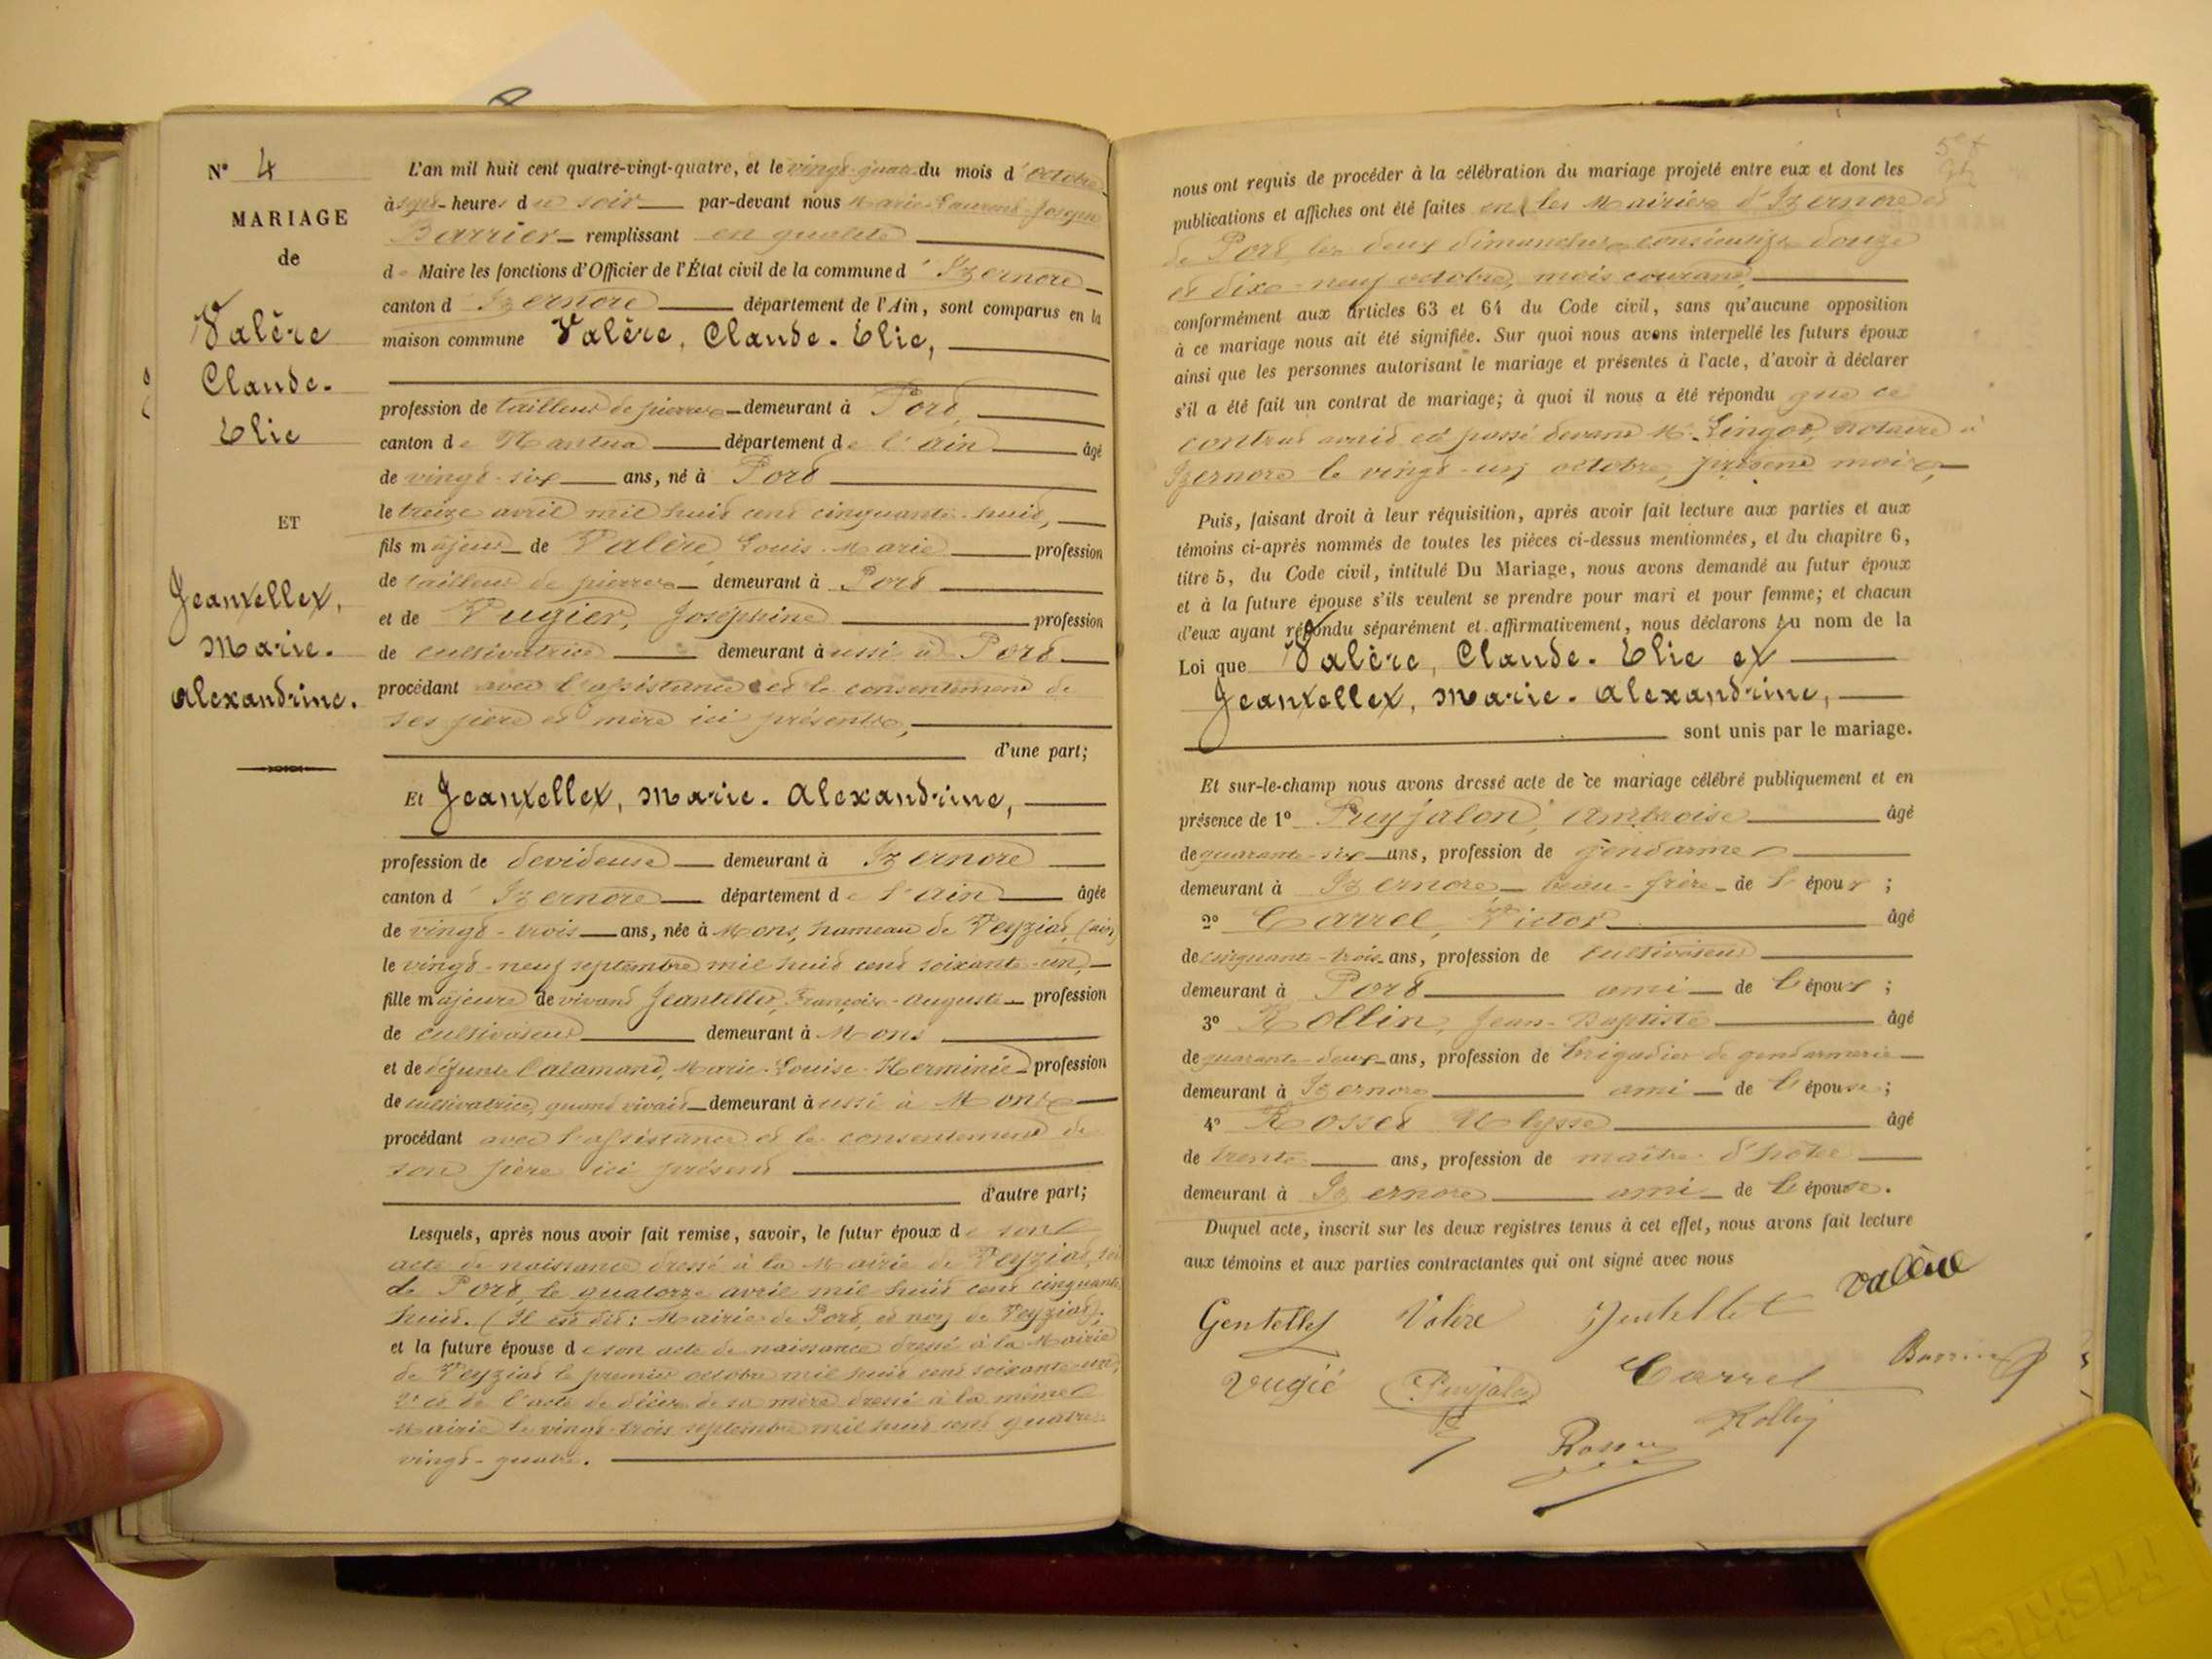 N° 4
MARIAGE
de
Valère
Claude-
Elie
ET
Jeantellet,
Marie-
Alexandrine.
L'an mil huit cent quatre-vingt-quatre, et le vingt-quatre du mois d'octobre
à sept heures du soir par-devant nous Marie-Laurent-Joseph
Barrier remplissant en qualité
de Maire les fonctions d'Officier de l'État civil de la commune d'Izernore
canton d'Izernore département de l'Ain, sont comparus en la
maison commune Valère, Claude-Elie,
profession de tailleur de pierres demeurant à Port,
canton de Nantua département de l'Ain âgé
de vingt-six ans, né à Port
le treize avril mil huit cent cinquante-huit,
fils majeur de Valère, Louis-Marie profession
de tailleur de pierres demeurant à Port
et de Vugier, Joséphine profession
de cultivatrice demeurant aussi à Port
procédant avec l'assistance et le consentement de
ses père et mère ici présents,
d'une part;
Et Jeantellet, Marie-Alexandrine,
profession de devideuse demeurant à Izernore
canton d'Izernore département de l'Ain âgée
de vingt-trois ans, née à Mons, hameau de Veyziat, (Ain)
le vingt-neuf septembre mil huit cent soixante-un,
fille majeure de vivant Jeantellet, François-Auguste profession
de cultivateur demeurant à Mons
et de défunte Calamand, Marie-Louise-Herminie profession
de cultivatrice, quand vivait demeurant aussi à Mons
procédant avec l'assistance et le consentement de
son père ici présent
d'autre part;
Lesquels, après nous avoir fait remise, savoir, le futur époux de son
acte de naissance dressé à la Mairie de Veyziat,
de Port, le quatorze avril mil huit cent cinquante
huit. (Il est dit: Mairie de Port, et non de Veyziat).
et la future épouse de son acte de naissance dressé à la Mairie
de Veyziat le premier octobre mil huit cent soixante-un,
2° et de l'acte de décès de sa mère dressé à la même
Mairie le vingt-trois septembre mil huit cent quatre-
vingt-quatre.
nous ont requis de procéder à la célébration du mariage projeté entre eux et dont les
publications et affiches ont été faites en les Mairies d'Izernore et
de Port les deux dimanches consécutifs douze
et dix-neuf octobre, mois courant,
conformément aux articles 63 et 64 du Code civil, sans qu'aucune opposition
à ce mariage nous ait été signifiée. Sur quoi nous avons interpellé les futurs époux
ainsi que les personnes autorisant le mariage et présentes à l'acte, d'avoir à déclarer
s'il a été fait un contrat de mariage; à quoi il nous a été répondu que ce
contrat avait été passé devant Me Lingot, notaire à
Izernore le vingt-un octobre, présent mois,
Puis, faisant droit à leur réquisition, après avoir fait lecture aux parties et aux
témoins ci-après nommés de toutes les pièces ci-dessus mentionnées, et du chapitre 6,
titre 5, du Code civil, intitulé Du Mariage, nous avons demandé au futur époux
et à la future épouse s'ils veulent se prendre pour mari et pour femme; et chacun
d'eux ayant répondu séparément et affirmativement, nous déclarons au nom de la
Loi que Valère, Claude-Elie et
Jeantellet, Marie-Alexandrine,
sont unis par le mariage.
Et sur-le-champ nous avons dressé acte de ce mariage célébré publiquement et en
présence de 1° Puyjalon, Ambroise âgé
de quarante-six ans, profession de gendarme
demeurant à Izernore beau-frère de l'époux;
2° Carrel, Victor âgé
de cinquante-trois ans, profession de cultivateur
demeurant à Port ami de l'époux;
3° Rollin, Jean-Baptiste âgé
de quarante-deux ans, profession de brigadier de gendarmerie
demeurant à Izernore ami de l'épouse;
4° Rosset Ulysse âgé
de trente ans, profession de maître d'hôtel
demeurant à Izernore ami de l'épouse.
Duquel acte, inscrit sur les deux registres tenus à cet effet, nous avons fait lecture
aux témoins et aux parties contractantes qui ont signé avec nous
Gentellet Valère Jentellet Valère
Vugié Puyjalon Carrel Barrier
Rosset Rollin